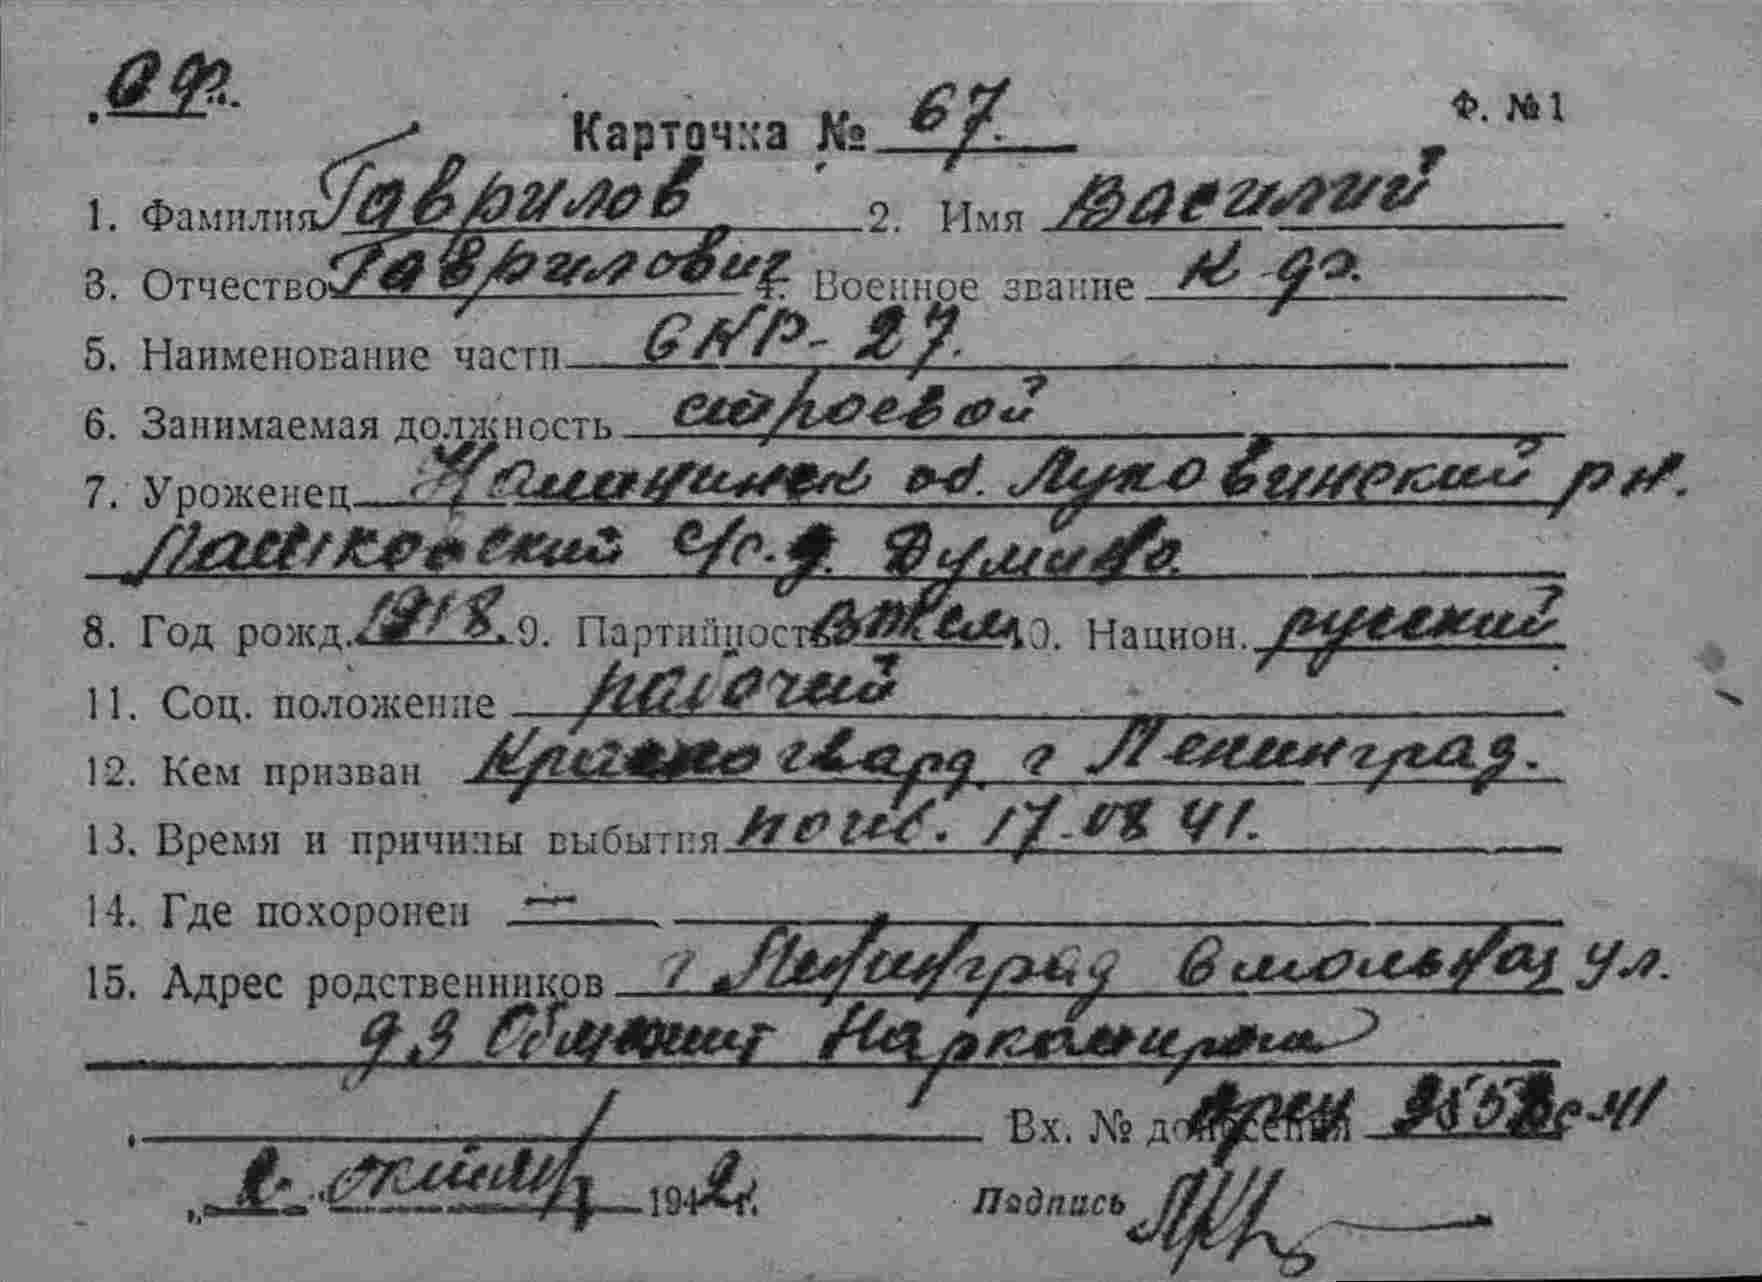 Ф. №1
Карточка № 67.
1. Фамилия Гаврилов 2. Имя Василий
3. Отчество Гаврилович 4. Военное звание к-ф.
5. Наименование части СКР-27.
6. Занимаемая должность строевой
7. Уроженец об. рн.
Пашковский с/с. д.
8. Год рожд. 1918. 9. Партийность 10. Национ. русский
11. Соц. положение рабочий
12. Кем призван Красногвард. г Ленинград.
13. Время и причины выбытия погиб. 17.08 41.
14. Где похоронен —
15. Адрес родственников г Ленинград ул.
д 3 Общежит Наркомпроса
Вх. № донесения
октября 1942 г.
Подпись